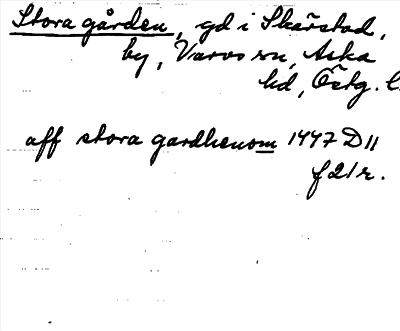 Stora gården, gd i Skärstad,
by, Varvs sn, Aska
hd, Östg. l.
aff stora gardhenom 1447 D 11
f 21 r.